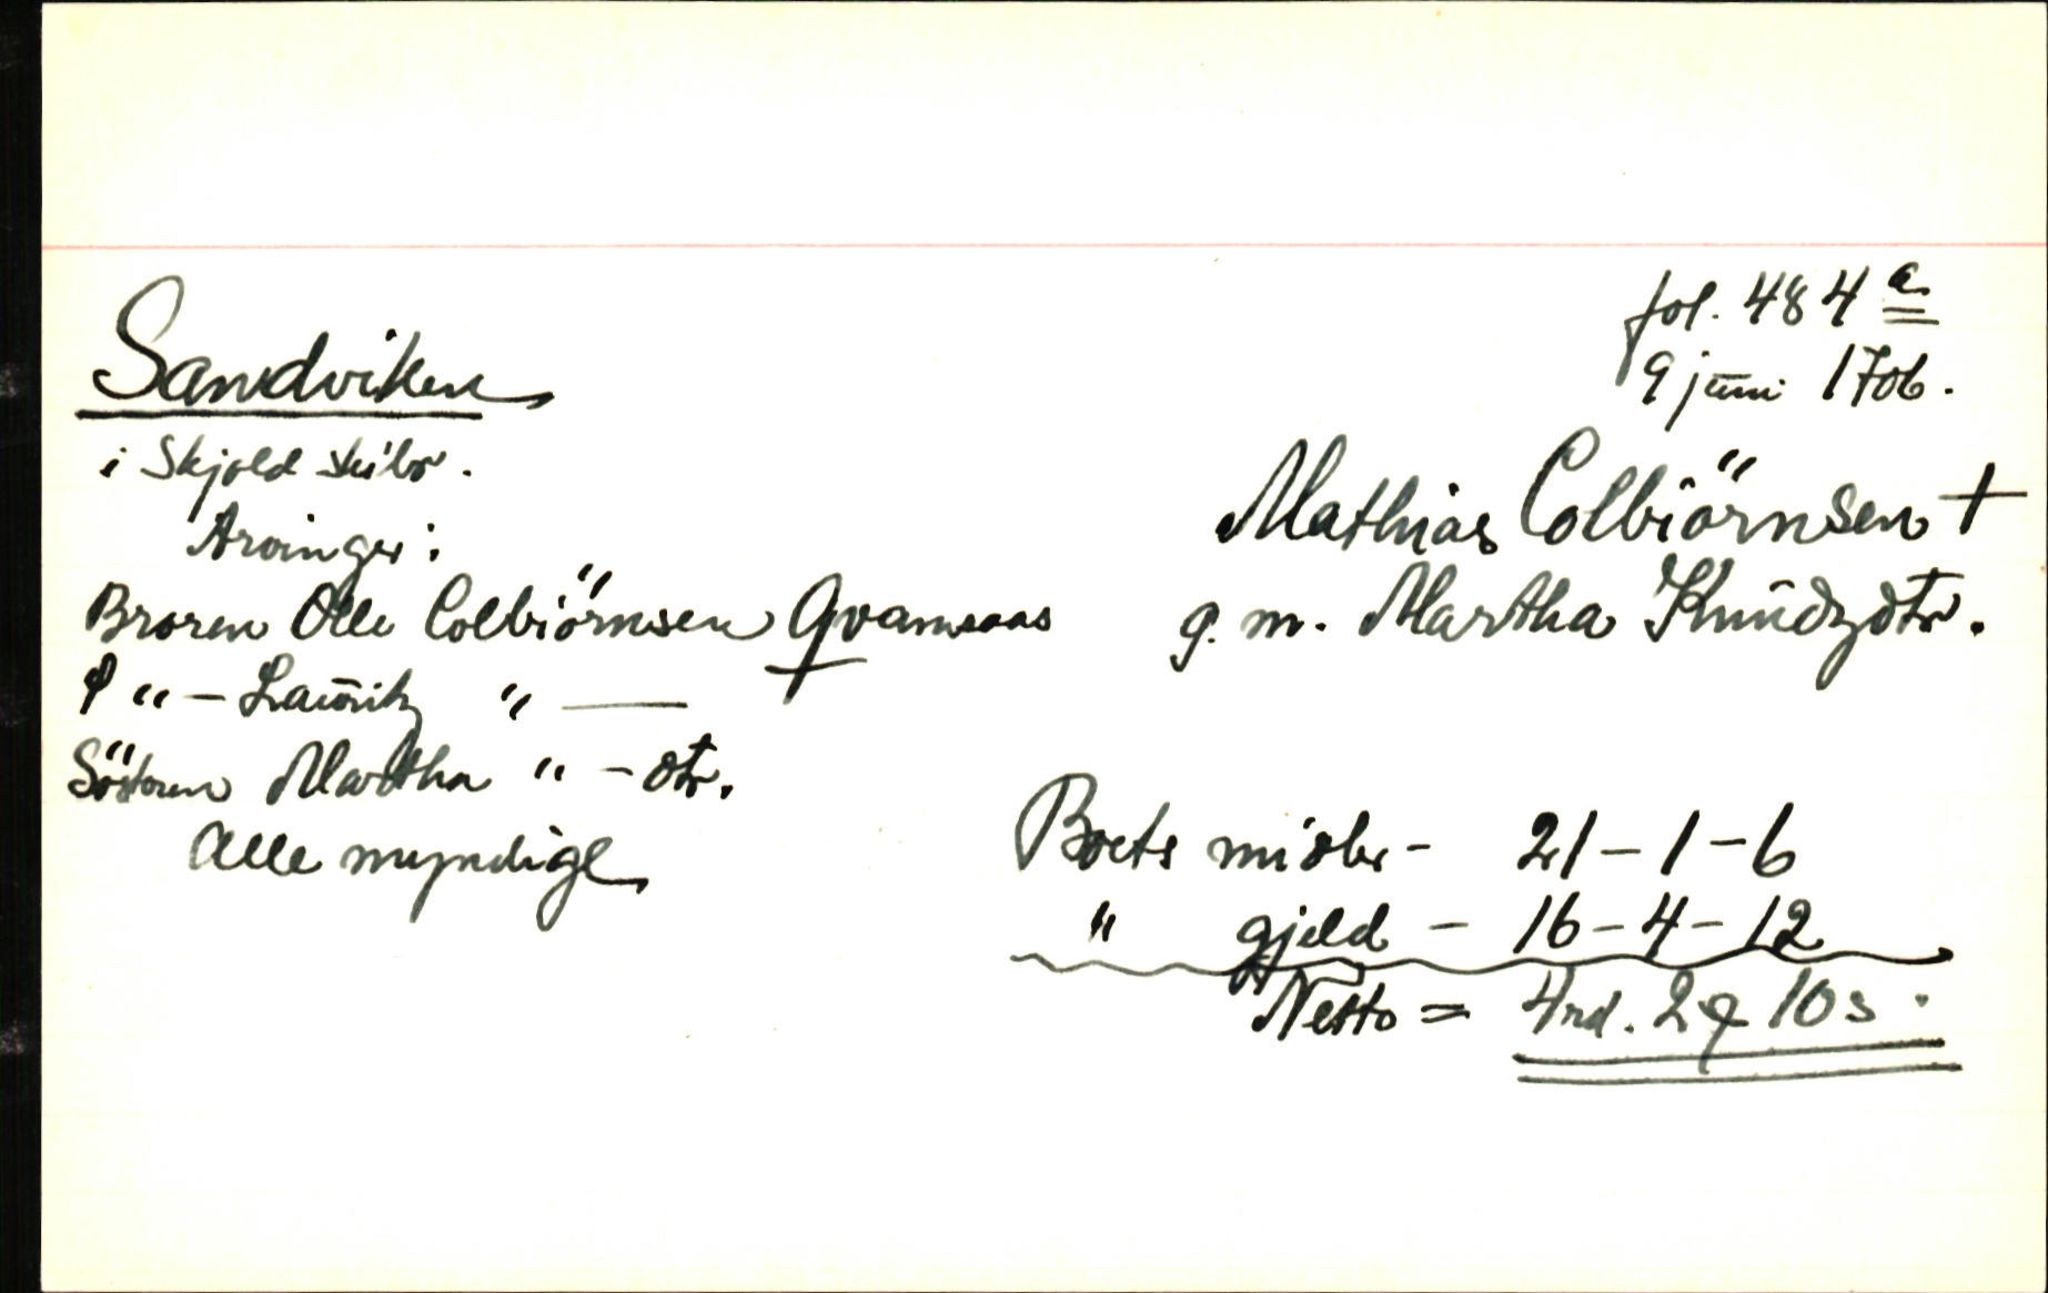 fol. 484 a
9 juni 1706.
Sandviken
i Skjold skibr.
Arvinger:
Broren Olle Colbiörnsen Qvamsaas
" - Lauritz " —
Söstern Martha " - dtr.
Alle myndige
Mathias Colbiörnsen +
g. m. Martha Knudzdtr.
Boets midler - 21 - 1 - 6
" gjeld - 16 - 4 - 12
Netto = 4 rd. 2 q 10 s.